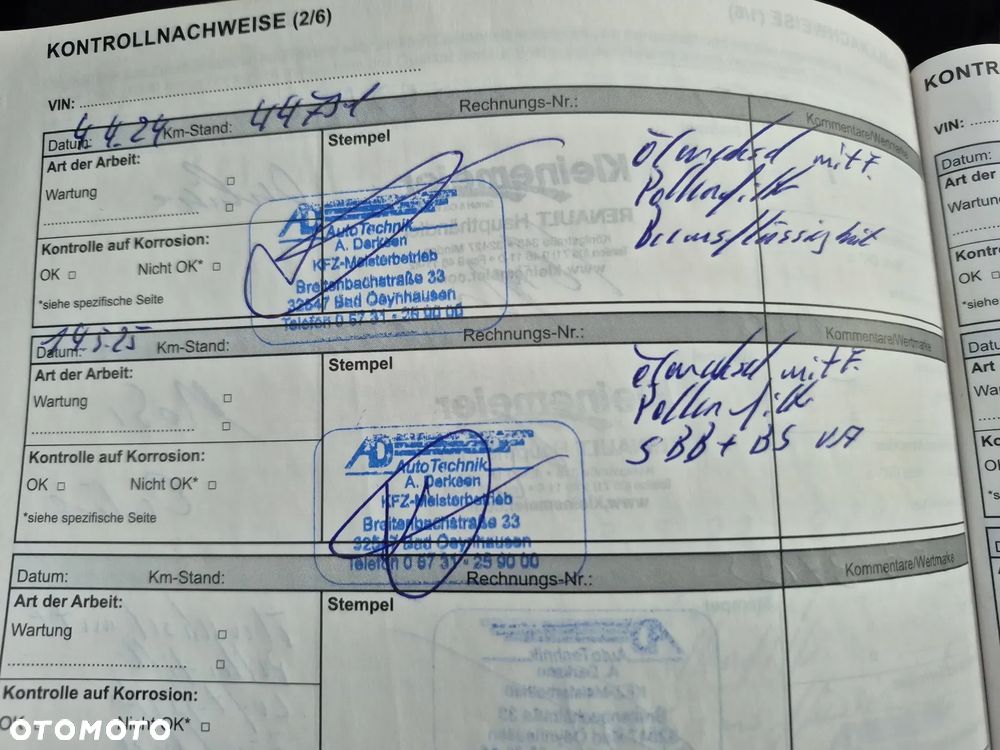 KONTROLLNACHWEISE (2/6)
VIN:
Datum: 4.4.24 Km-Stand: Rechnungs-Nr.: Kommentare/Wertmarke
Art der Arbeit:
Stempel
Wartung
Ölwechsel mit F.
Pollenfilter
Bremsflüssigkeit
Kontrolle auf Korrosion:
OK Nicht OK*
*siehe spezifische Seite
AD
AutoTechnik
A. Derksen
KFZ-Meisterbetrieb
Breitenbachstraße 33
32547 Bad Oeynhausen
Telefon 0 57 31 - 25 90 00
Datum: Km-Stand: Rechnungs-Nr.: Kommentare/Wertmarke
Art der Arbeit:
Stempel
Wartung
Ölwechsel mit F.
Pollenfilter
S BB + BS VA
Kontrolle auf Korrosion:
OK Nicht OK*
*siehe spezifische Seite
AD
AutoTechnik
A. Derksen
KFZ-Meisterbetrieb
Breitenbachstraße 33
32547 Bad Oeynhausen
Telefon 0 57 31 - 25 90 00
Datum: Km-Stand: Rechnungs-Nr.: Kommentare/Wertmarke
Art der Arbeit:
Stempel
Wartung
Kontrolle auf Korrosion:
OK Nicht OK*
KONTR
VIN:
Datum:
Art der
Wartung
Kontro
OK
*siehe
Datu
Art
Wa
Ko
OTOMOTO